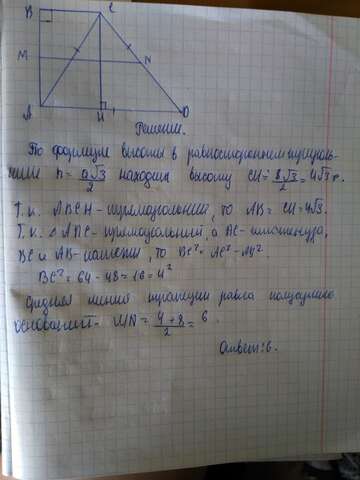 B C
M N
A H D
Решение.
По формуле высоты в равностороннем треуголь-
нике h = a√3/2 находим высоту CH = 8√3/2 = 4√3.
Т.к. ABCH - прямоугольник, то AB = CH = 4√3.
Т.к. △ ABC - прямоугольный, а AC - гипотенуза,
BC и AB - катеты, то BC² = AC² - AB².
BC² = 64 - 48 = 16 = 4²
Средняя линия трапеции равна полусумме
оснований - MN = 4 + 8/2 = 6
Ответ: 6.